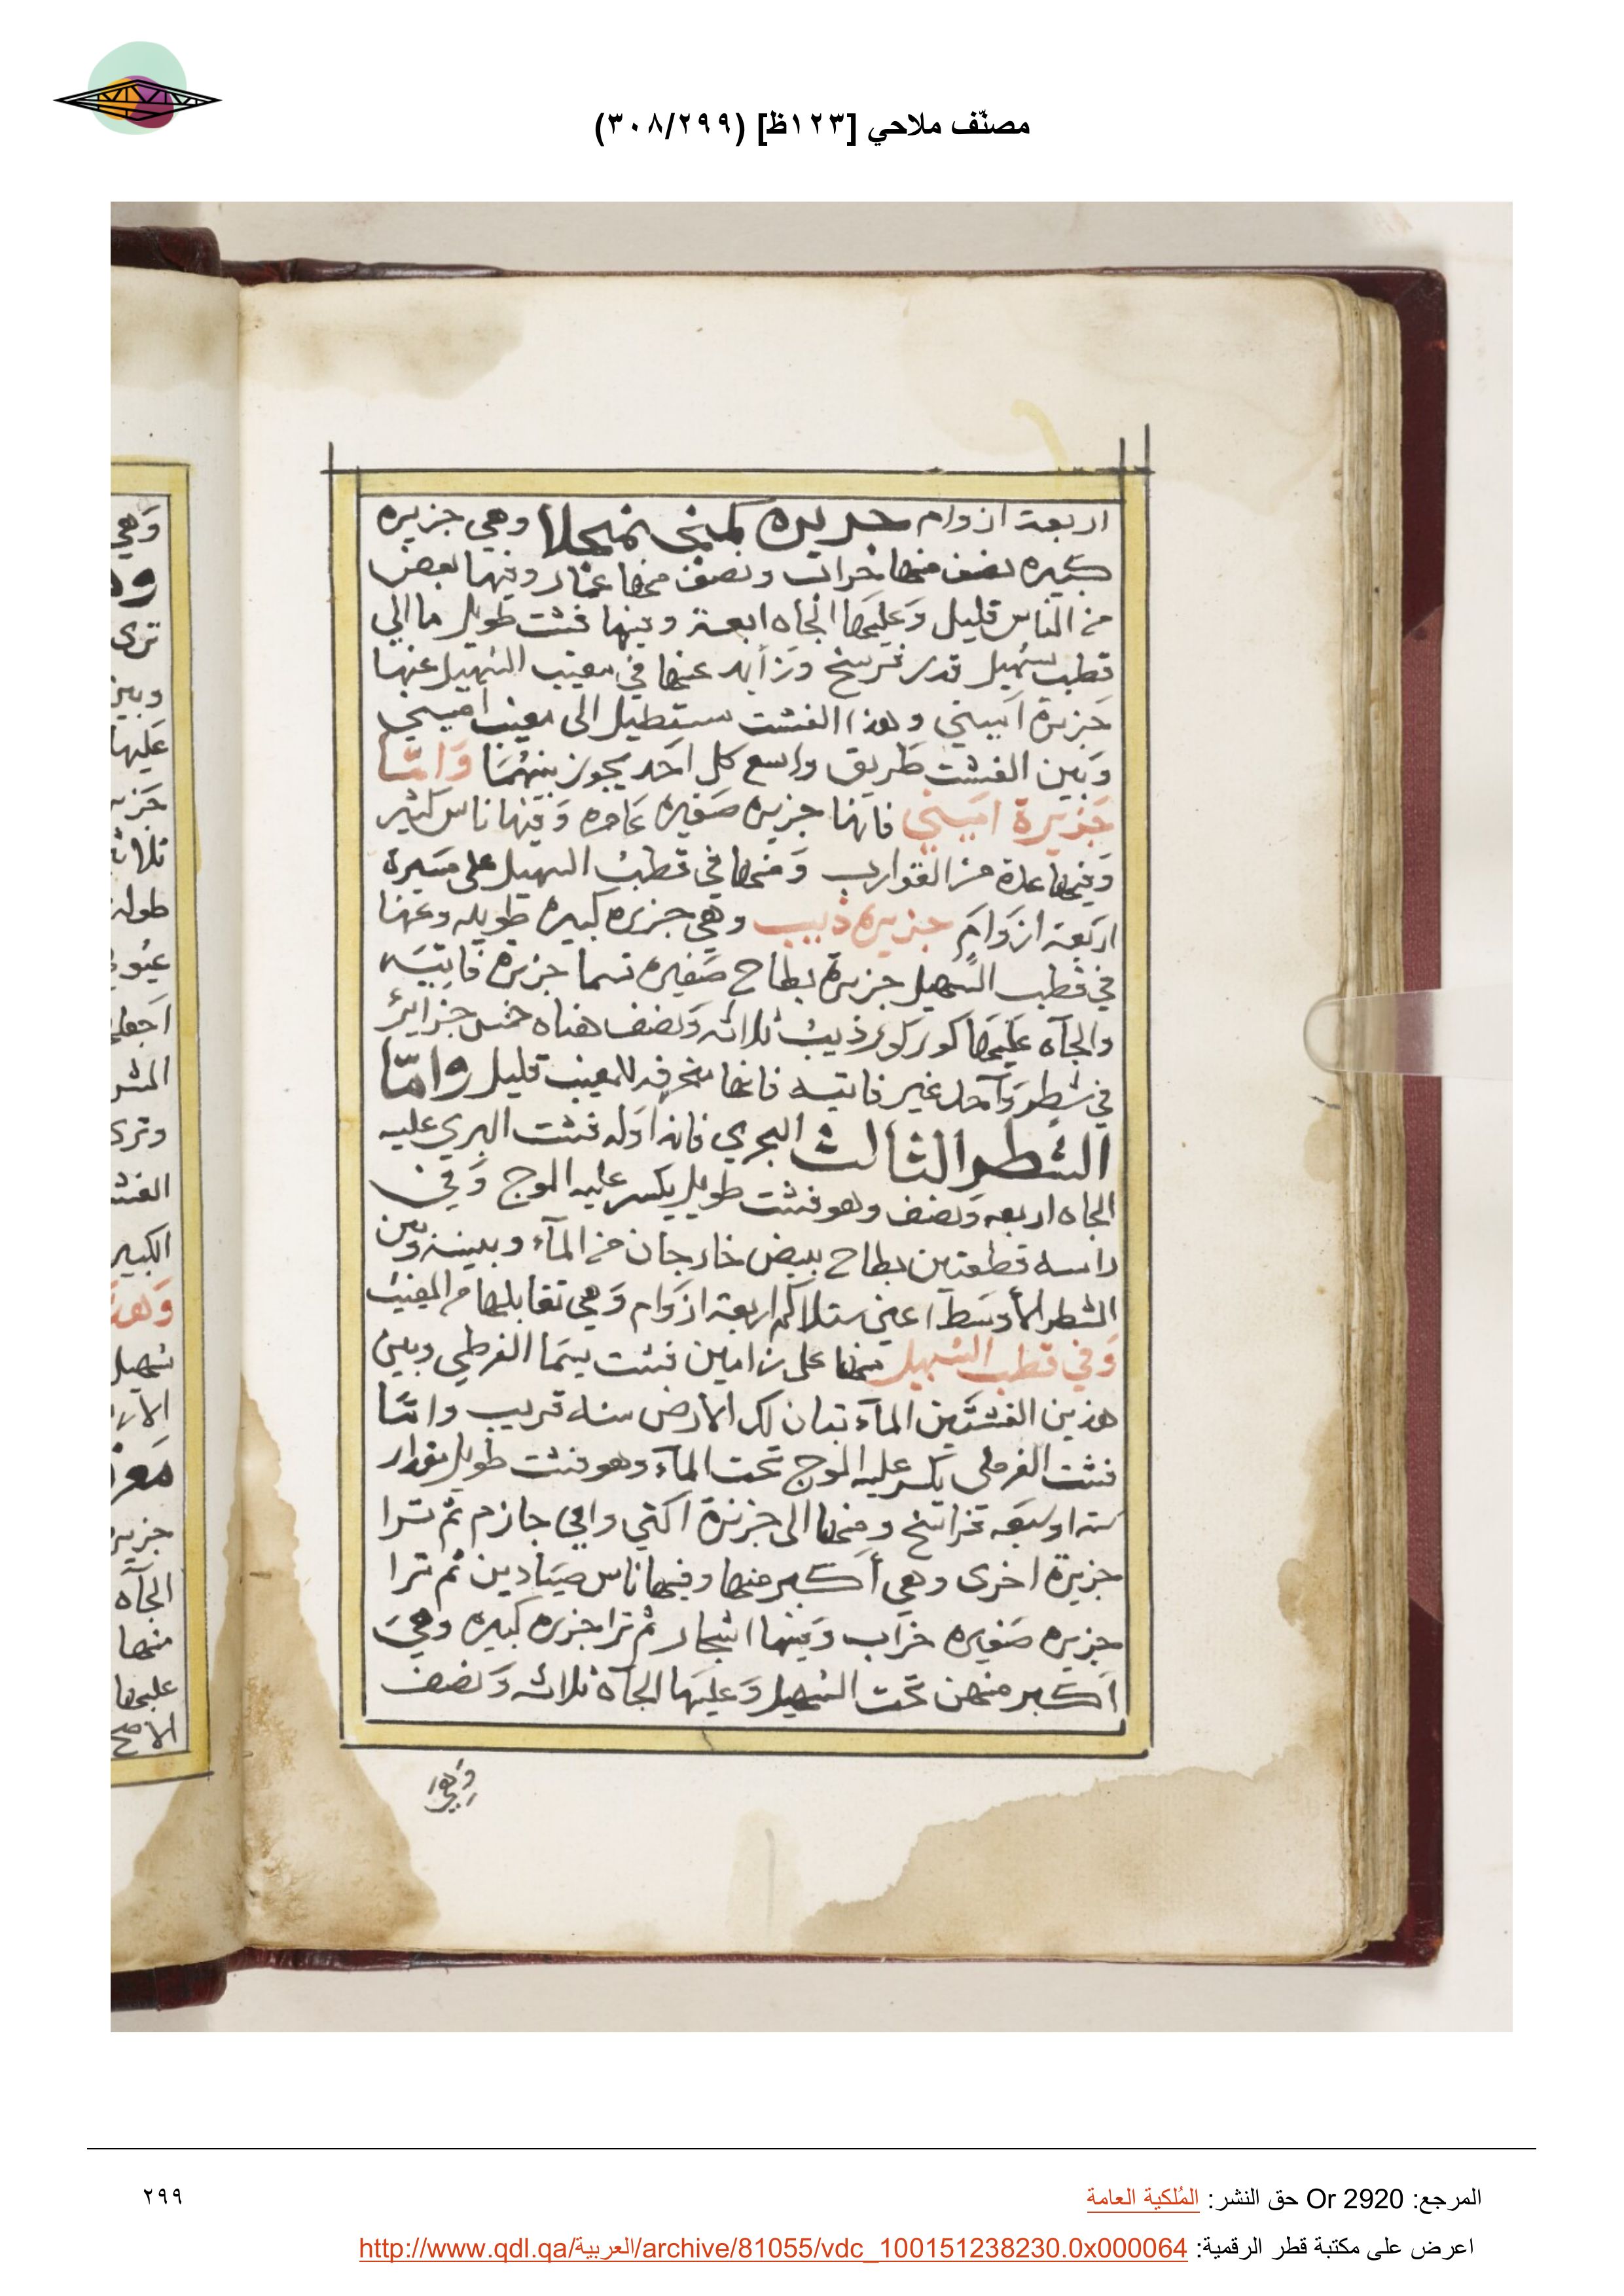 مصنّف ملاحي [١٢٣ظ] (٣٠٨/٢٩٩)
اربعة ازوام جزيره كمبني نمجلا وهي جزيره
كبيره نصف منها خراب ونصف منها عمار وفيها بعض
من الناس قليل وَعليها الجاه اربعة وفيها فشت طويل ما الي
قطب سهيل قدر فرسخ وترآيد عنها في مغيب السهيل عنها
جَزيرة اميني وهذا الفشت ستطيل الى مغيب اميني
وَبين الفشت طَريق واسع كل احَد يجوز بينهُمَا وَامّا
جَزيرة اميني فانها جزيره صَغيره عَامره وَفيها ناس كثير
وَفيها عدة من القوارب وَمنها في قطب السهيل على مَسيرة
اربَعة ازوَام جزيره ذيب وهي جزيره كبيره طويله وعنها
في قطب السّهيل جزيرة بطاح صَغيره تسما جزيرة فاتيَه
والجآه عَليهَا كور كور ذيب ثلاثه وَنصف هناه خمس جزائر
في شطر وَآحد غير فاتيه فانها منحرفه للمغيب قليل وامّا
الشطر الثالث البحري فانه اوَله فشت الهري عليه
الجاه اربعه وَنصف وهو فشت طويل يكسر عليه الموج وَفي
راسه قطعتين بطاح بيض خارجان من المآء وبينه وبين
الشطر الأوسَط اعني ستلاكم اربعة ازوَام وَهي تقابلها من المغيب
وَفي قطب السّهيل منها على زامين فشت يسَما القرطي وبين
هذين الفشتَين المآء تبان لك الارض منه قريب وامّا
فشت القرطي يكسر عليه الموج تحت المآء وهو فشت طويل بمقدار
سته او سَبعه فراسَخ ومنها الى جزيرة اكتي وافي جازم ثم ترا
جزيرة اخرى وهي أكبر منها وفيها ناس صيَادين ثم ترا
جزيره صَغيره خرَاب وَفيها اشجار ثم ترا جزيره كبيره وهيَ
اَكبر منهن تحَت السُهيل وَعليَها الجَآه ثلاثه وَنصف
المرجع: Or 2920 حق النشر: المُلكية العامة
٢٩٩
اعرض على مكتبة قطر الرقمية: http://www.qdl.qa/العربية/archive/81055/vdc_100151238230.0x000064